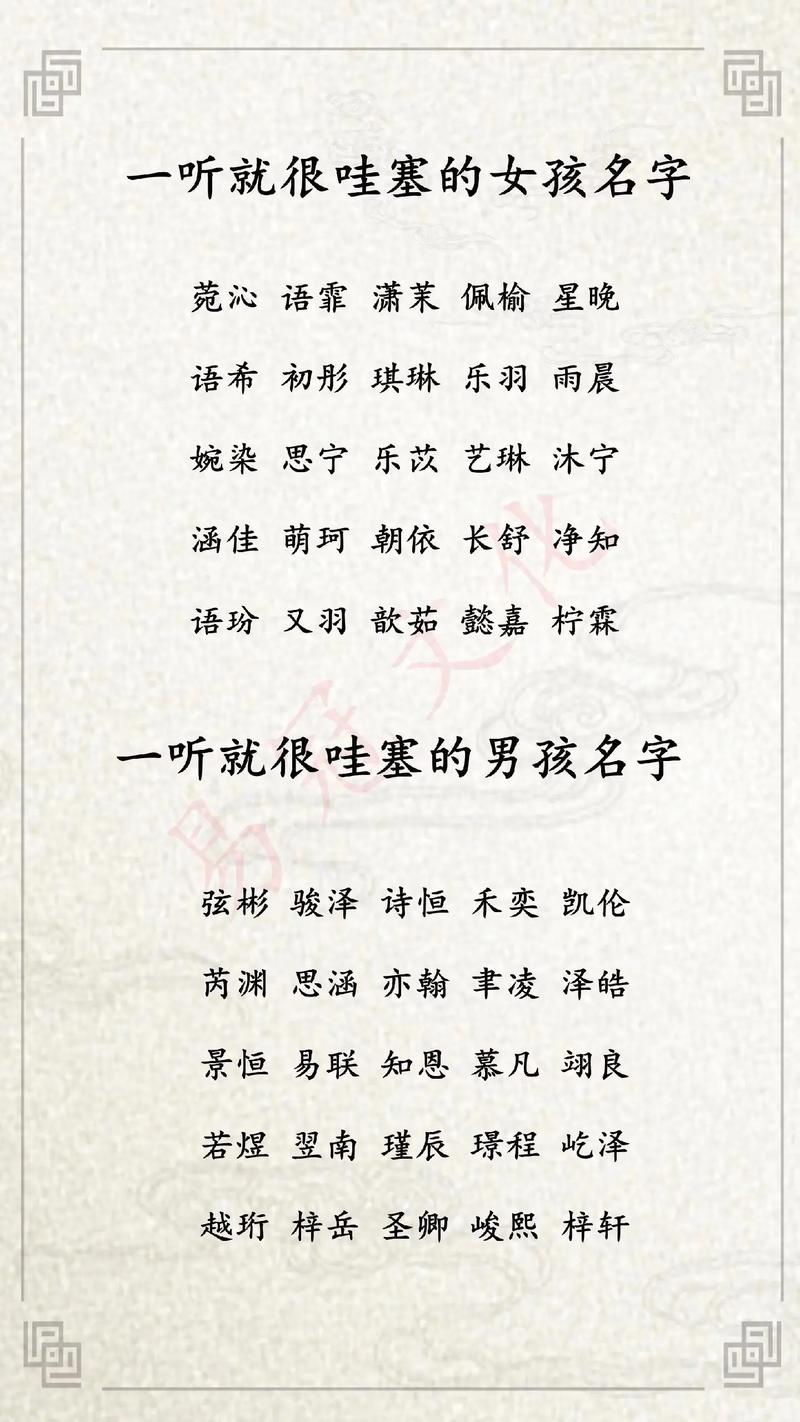 一听就很哇塞的女孩名字
菀沁 语霏 潇茉 佩榆 星晚
语希 初彤 琪琳 乐羽 雨晨
婉染 思宁 乐苡 艺琳 沐宁
涵佳 萌珂 朝依 长舒 净知
语玢 又羽 歆茹 懿嘉 柠霖
一听就很哇塞的男孩名字
弦彬 骏泽 诗恒 禾奕 凯伦
芮渊 思涵 亦翰 聿凌 泽皓
景恒 易联 知恩 慕凡 翊良
若煜 翌南 瑾辰 璟程 屹泽
越珩 梓岳 圣卿 峻熙 梓轩
易冠文化